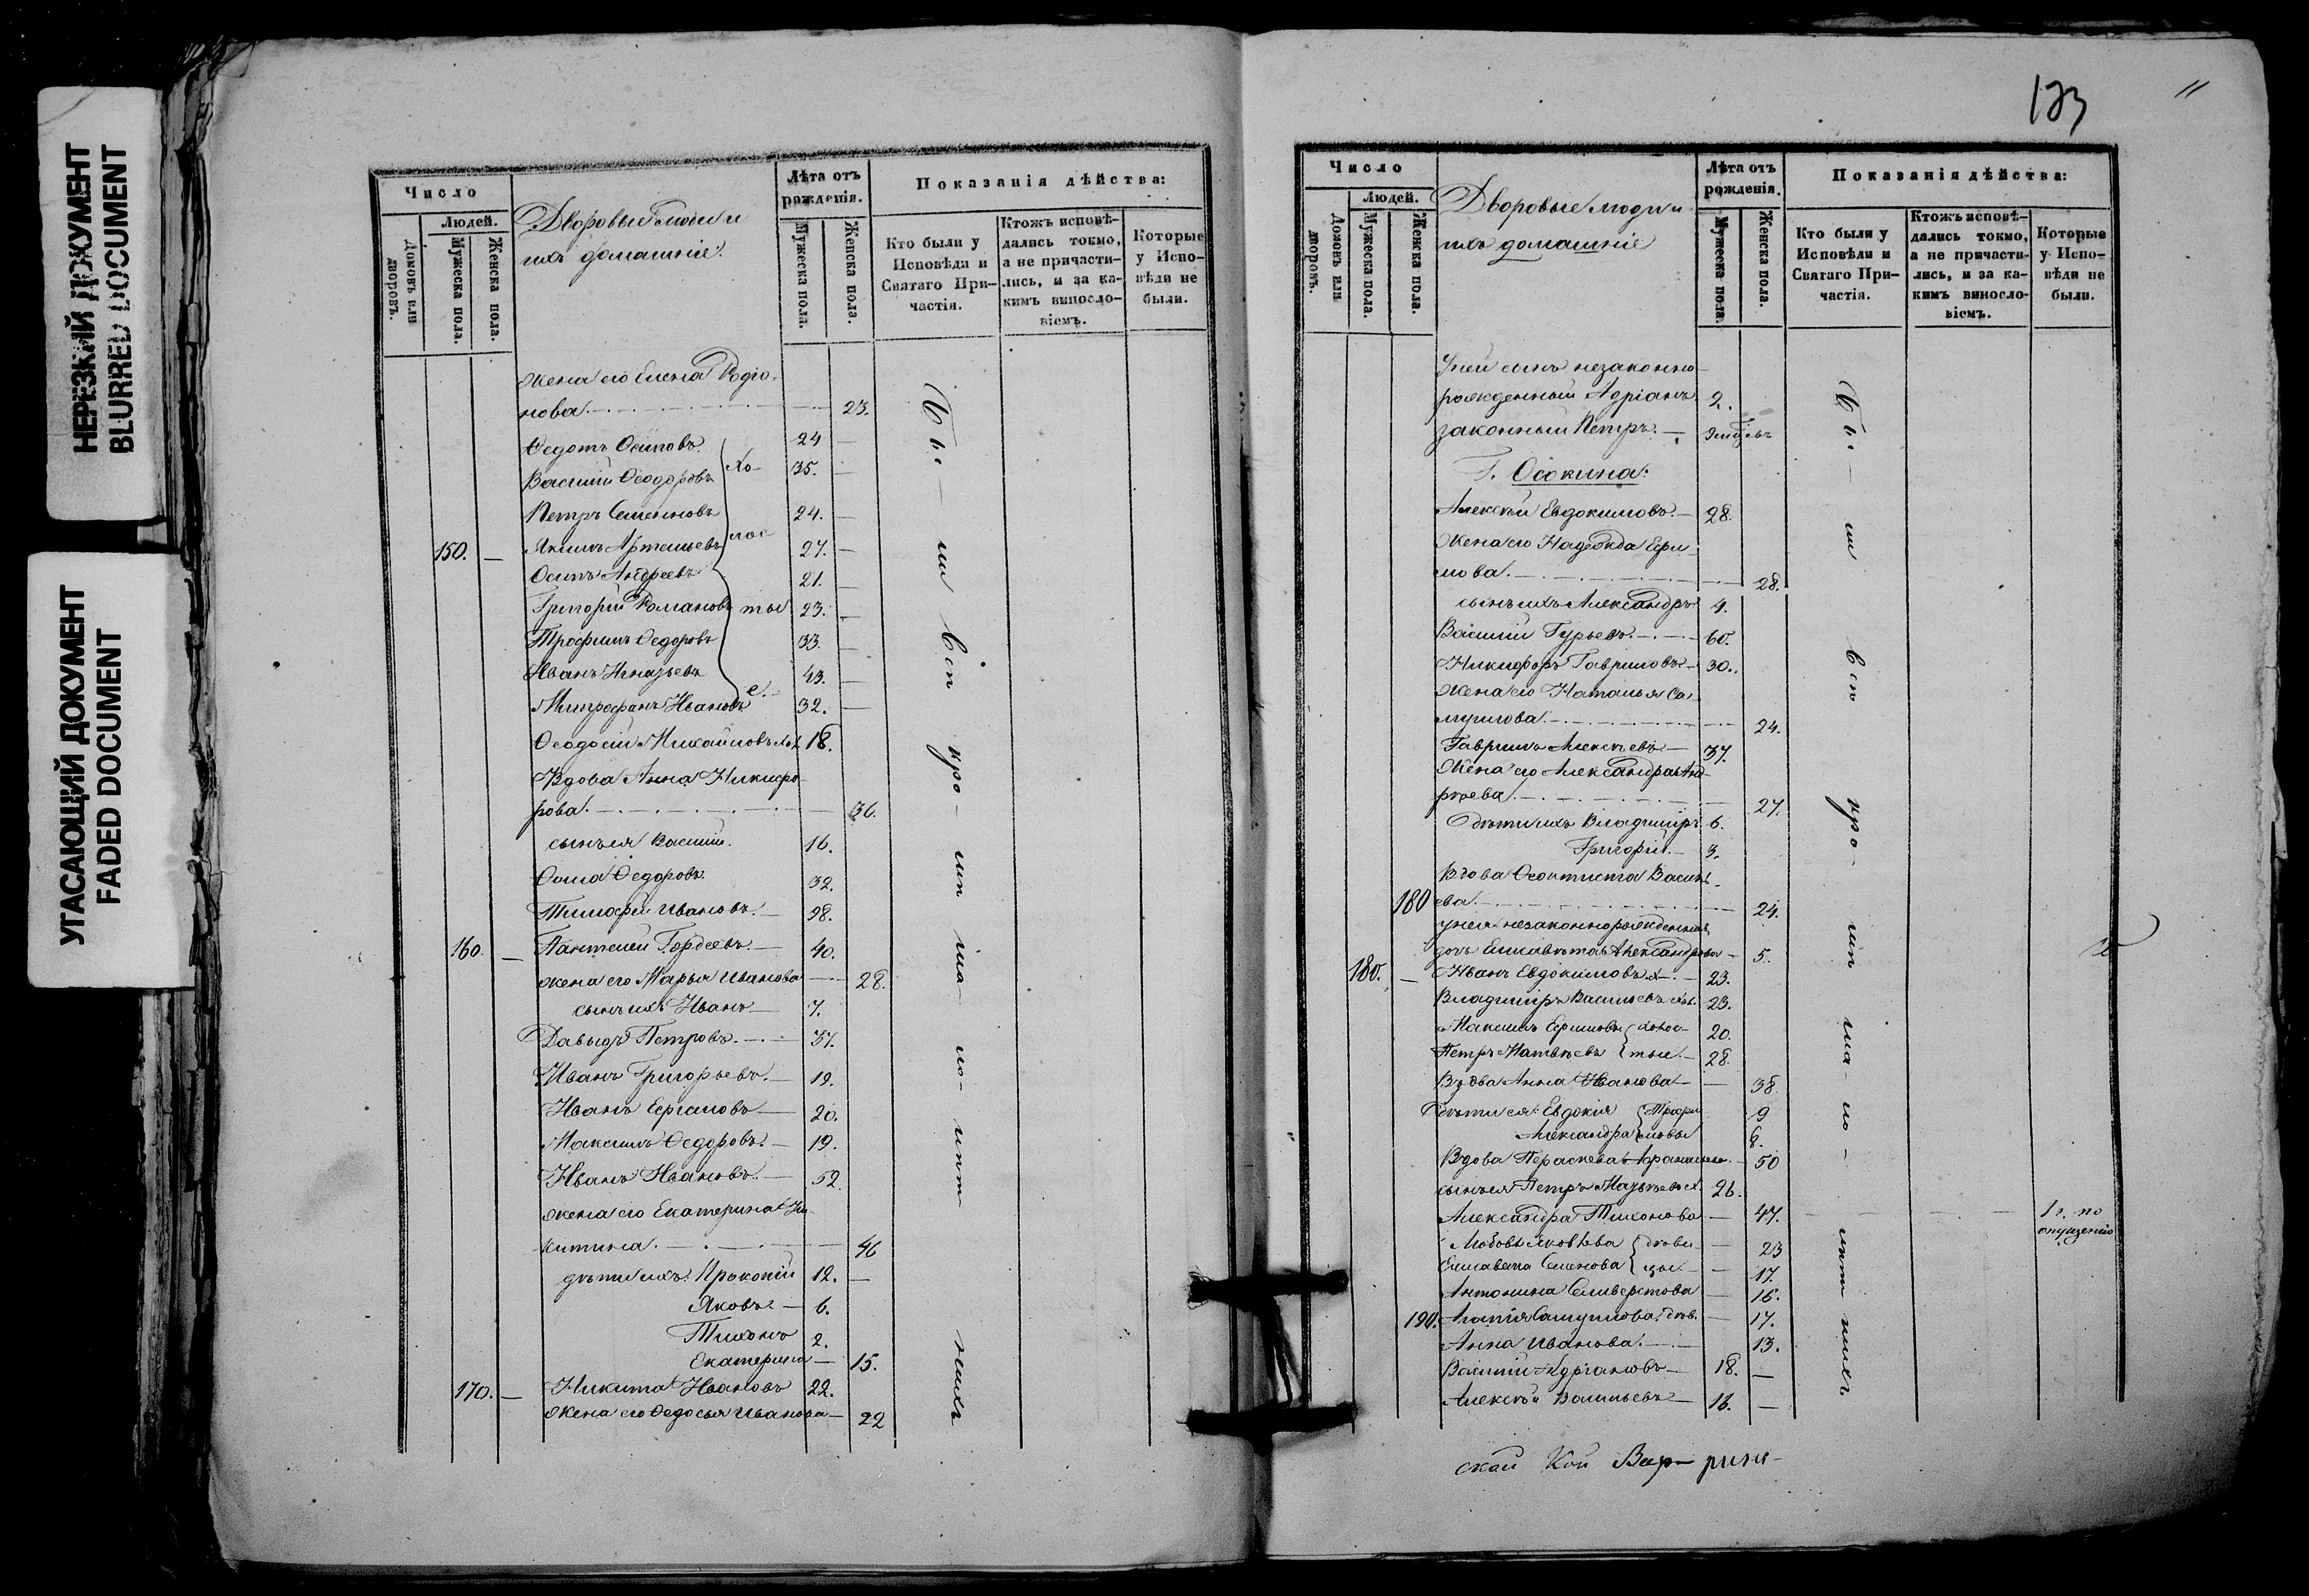 НЕРЕЗКИЙ ДОКУМЕНТ
BLURRED DOCUMENT
УГАСАЮЩИЙ ДОКУМЕНТ
FADED DOCUMENT
Число
Людей.
Домовъ или дворовъ.
Мужеска пола.
Женска пола.
Дворовые люди и
ихъ домашніе:
Лѣта отъ рожденія.
Мужеска пола.
Женска пола.
Показанія дѣйства:
Кто были у Исповѣди и Святаго При-
частія.
Ктожъ исповѣ-
дались токмо,
а не причасти-
лись, и за ка-
кимъ винословіемъ.
Которые у Испо-
вѣди не были.
Жена его Елена Родіо-
нова. 23.
Федотъ Осиповъ. 24
Василій Ѳеодоровъ 35.
Петръ Семеновъ 24.
150. Якимъ Артемьевъ 27.
Осипъ Андреевъ 21.
Григорій Романовъ 23.
Трофимъ Ѳедоровъ 33.
Иванъ Игнатьевъ 43.
Митрофанъ Ивановъ 32.
Холостые.
Ѳеодосій Михайловъ хол. 18.
Вдова Анна Никифо-
рова. 36.
сынъ ея Василій. 16.
Ѳома Ѳедоровъ. 32.
Тимофей Ивановъ. 38.
160. Пантелей Гордеевъ 40.
жена его Марья Иванова 28.
сынъ ихъ Иванъ 7.
Давыдъ Петровъ. 37.
Иванъ Григорьевъ. 19.
Иванъ Ефимовъ 20.
Максимъ Ѳедоровъ. 19.
Иванъ Ивановъ. 52.
жена его Екатерина Ни-
китина. 46
дѣти ихъ: Прокопій 12.
Яковъ 6.
Тихонъ 2.
Екатерина 15.
170. Никита Ивановъ 22.
Жена его Ѳедосья Иванова 22
133
11
Число
Людей.
Домовъ или дворовъ.
Мужеска пола.
Женска пола.
Дворовые люди и
ихъ домашніе
Лѣта отъ рожденія.
Мужеска пола.
Женска пола.
Показанія дѣйства:
Кто были у Исповѣди и Святаго При-
частія.
Ктожъ исповѣ-
дались токмо,
а не причасти-
лись, и за ка-
кимъ винословіемъ.
Которые у Испо-
вѣди не были.
У ней сынъ незаконно-
рожденный Адріанъ 2.
законный Петръ.
Г. Осокина:
Алексѣй Евдокимовъ. 28.
Жена его Надежда Ефи-
мова. 28.
сынъ ихъ Александръ 4.
Василій Гурьевъ. 60.
Никифоръ Гавриловъ 30.
Жена его Наталья Са-
мулова. 24.
Гаврилъ Алексѣевъ 37.
Жена его Александра Анд-
реева. 27.
дѣти ихъ Владиміръ 6.
Григорій. 3.
Вдова Ѳеоктиста Василь-
180 ева. 24.
у нея незаконнорожденная
дочь Елисавета Александрова 5.
180. Иванъ Евдокимовъ х. 23.
Владиміръ Васильевъ хол. 23.
Максимъ Ефимовъ холос- 20.
Петръ Матвѣевъ тые. 28.
Вдова Анна Иванова 38.
Дѣти ея: Евдокія Трофи- 9
Александра мовы 8.
Вдова Параскева 50
сынъ ея Петръ 26.
Александра Тихонова 47. 1 г. по опущенію
Любовь Яковлева дѣви- 23
Елисавета Семенова цы. 17.
Антонина Селиверстова 16.
190. Агапія Самуилова дѣв. 17.
Анна Иванова. 13.
Василій Адріановъ 18.
Алексѣй Васильевъ 16.
ской Кой